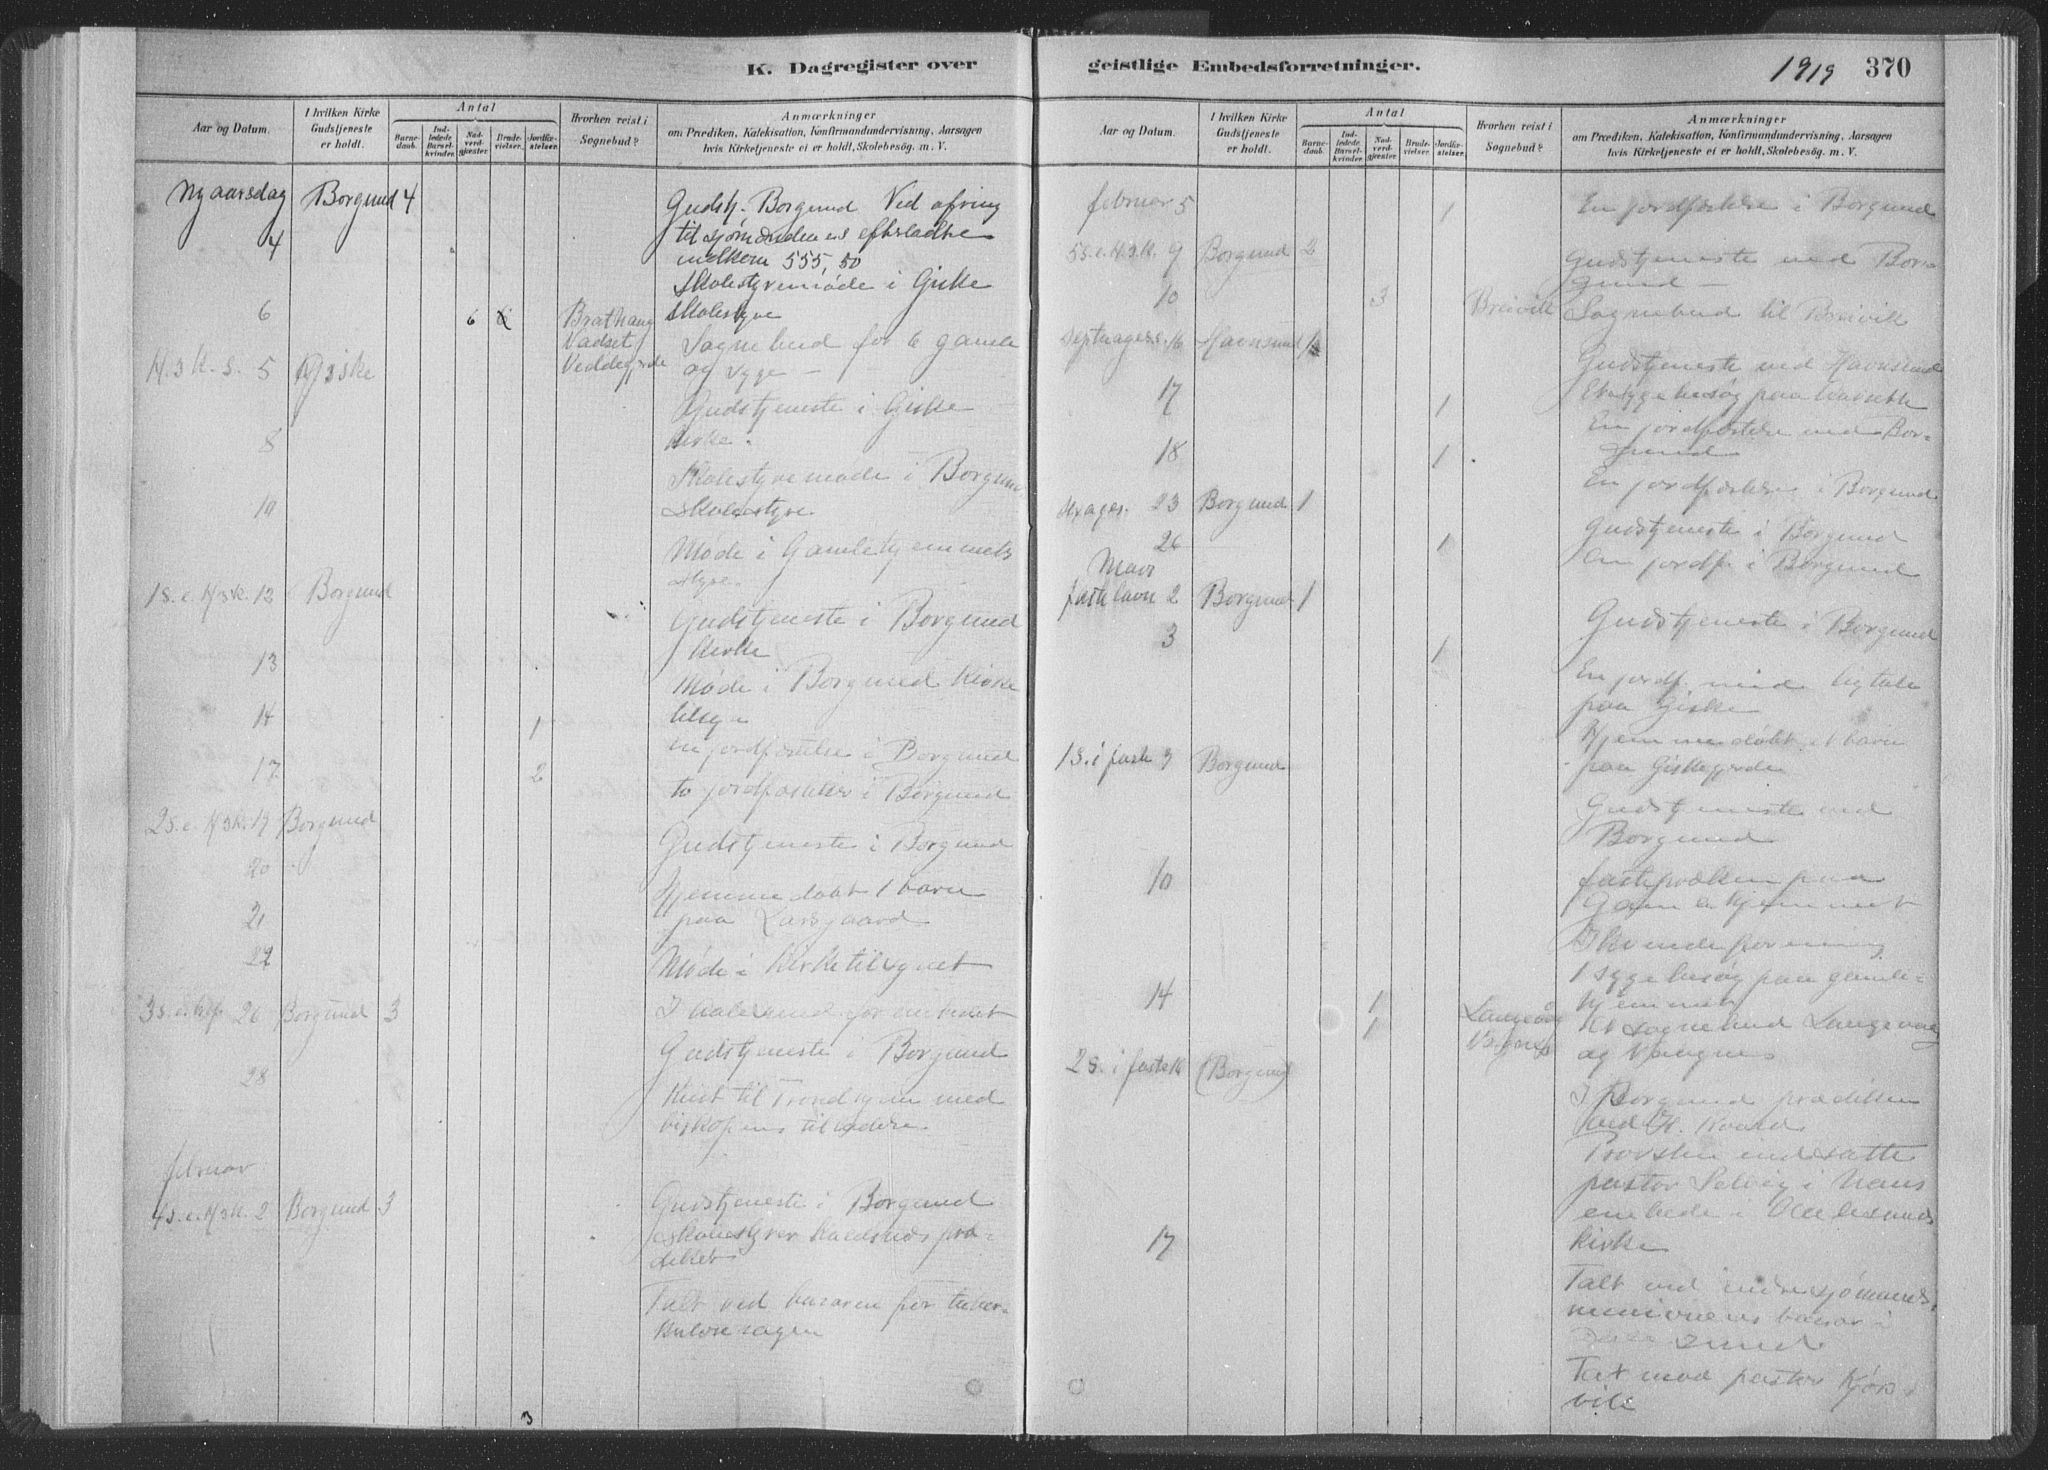 K. Dagregister over
Aar og Datum.
I hvilken Kirke Gudstjeneste er holdt.
Antal
Barnedaab.
Indledede Barselkvinder.
Nadverdgjester.
Brudevielser.
Jordfæstelser.
Hvorhen reist i Sognebud?
Anmærkninger
om Prædiken, Katekisation, Konfirmandundervisning, Aarsagen
hvis Kirketjeneste ei er holdt, Skolebesøg. m. V.
Nyaarsdag Borgund 4 Gudstj. Borgund Ved ofring
4 til sjømændenes efterladte
indkom 555,50
Skolestyremøde i Giske
6 6 Skolestyre
Vadset Sognebud for 6 gamle
H. 3 k. s. 5 Giske og syge —
Gudstjeneste i Giske
8 kirke.
Skolestyremøde i Borgund
10 Skolestyre.
Møde i Gamlehjemmets
styre.
1 s. e. H3k. 12 Borgund
Gudstjeneste i Borgund
kirke
13 Møde i Borgund kirke
14 1 tilsyn
en jordfæstelse i Borgund
17 2 to jordfæstelser i Borgund
2 s. e. H3k. 19 Borgund
Gudstjeneste i Borgund
20 Hjemmedøbt 1 barn
21 paa Larsgaard
22 Møde i kirketilsynet
3 s. e. 26 Borgund 3 I Aalesund
Gudstjeneste i Borgund
28 Reist til Trondhjem med
biskopens tilladelse.
februar
4 s. e. H3k. 2 Borgund 3 Gudstjeneste i Borgund
præ-
diket
Talt ved basaren for tuber-
kulosesagen
3
geistlige Embedsforretninger.
1919 370
Aar og Datum.
I hvilken Kirke Gudstjeneste er holdt.
Antal
Barnedaab.
Indledede Barselkvinder.
Nadverdgjester.
Brudevielser.
Jordfæstelser.
Hvorhen reist i Sognebud?
Anmærkninger
om Prædiken, Katekisation, Konfirmandundervisning, Aarsagen
hvis Kirketjeneste ei er holdt, Skolebesøg. m. V.
februar 5 1 En jordfæstelse i Borgund
5 s. e. H3k. 9 Borgund 2 Gudstjeneste ved Bor-
gund —
10 3 Breivik Sognebud til Breivik
Septuages. 16 Havnsund 1 Gudstjeneste ved Havnsund
17 1 Et sygebesøg paa
En jordfæstelse ved Bor-
18 1 gund
En jordfæstelse i Borgund
Sexages. 23 Borgund 1
26 1 Gudstjeneste i Borgund
En jordf. i Borgund
Mars
fastelavn 2 Borgund 1
Gudstjeneste i Borgund
3 1
En jordf. med ligtale
paa Giske
Hjemmedøbt et barn
1 s. i faste 9 Borgund paa Giskegjerde
Gudstjeneste ved
Borgund
10 fasteprædiken paa
Gamlehjemmet
I kvindeforening
1 sygebesøg paa gamle-
14 1 hjemmet
1 Langevåg To sognebud Langevaag
og Spangnes
2 s. i faste 16 (Borgund)
I Borgund prædiken
ved
Provsten indsatte
pastor Selvig i hans
embede i Aalesunds
17 kirke
Talt ved indresjømands-
missionens basar i
Aalesund